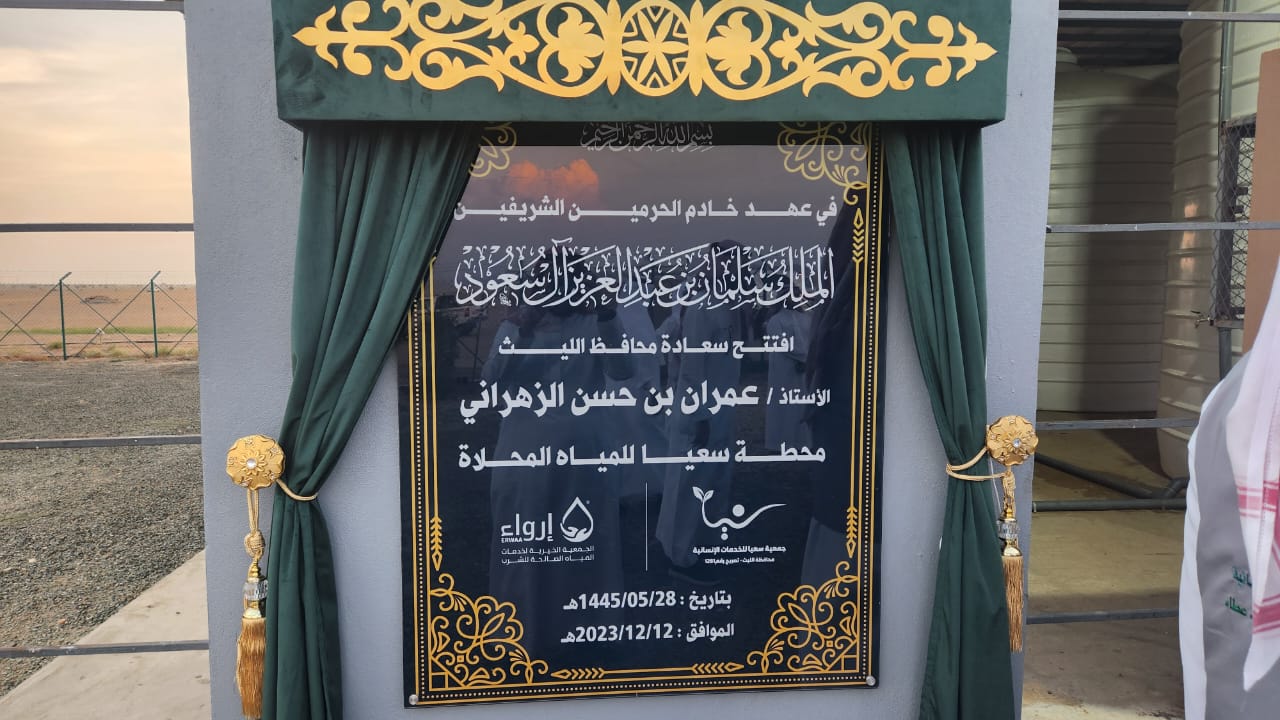 بسم الله الرحمن الرحيم
في عهد خادم الحرمين الشريفين
الملك سلمان بن عبدالعزيز آل سعود
افتتح سعادة محافظ الليث
الأستاذ / عمران بن حسن الزهراني
محطة سعيا للمياه المحلاة
جمعية سعيا للخدمات الإنسانية
محافظة الليث - تصريح رقم 1291
إرواء
ERWAA
الجمعية الخيرية لخدمات
المياه الصالحة للشرب
بتاريخ : 1445/05/28هـ
الموافق : 2023/12/12هـ
عطاء